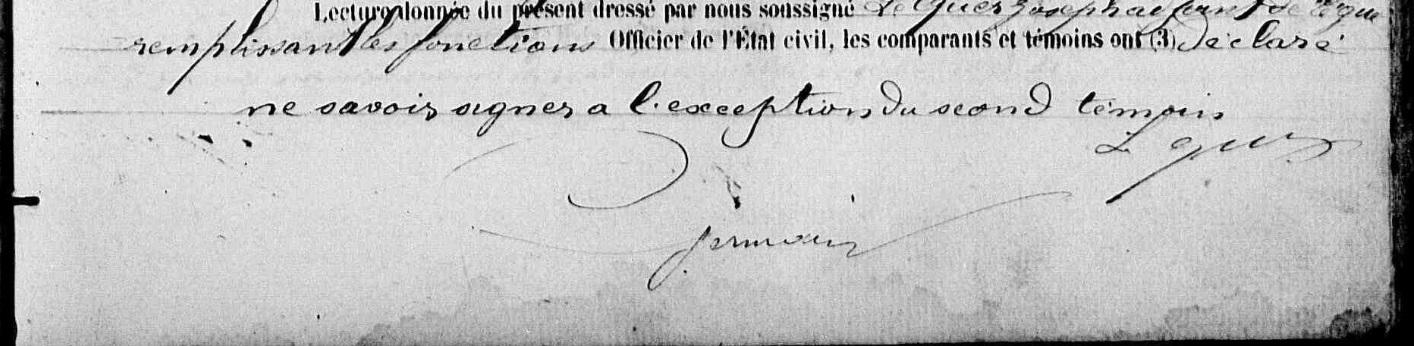 Lecture donnée du présent dressé par nous soussigné Le Guer Joseph adjoint
remplissant les fonctions Officier de l'État civil, les comparants et témoins ont (3) declaré
ne savoir signer a l'exception du second témoin
Le guer